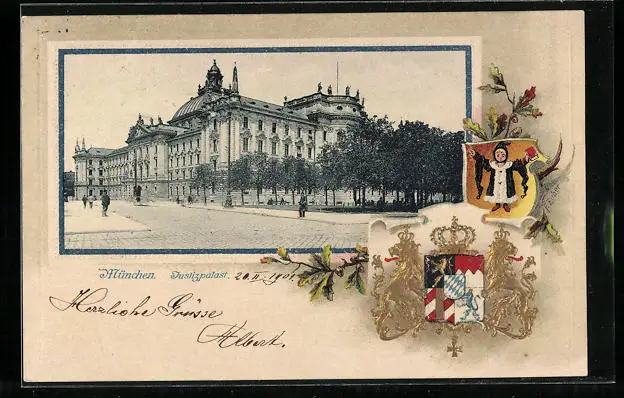 München. Justizpalast. 20.II.1901.
Herzliche Grüsse
Albert.